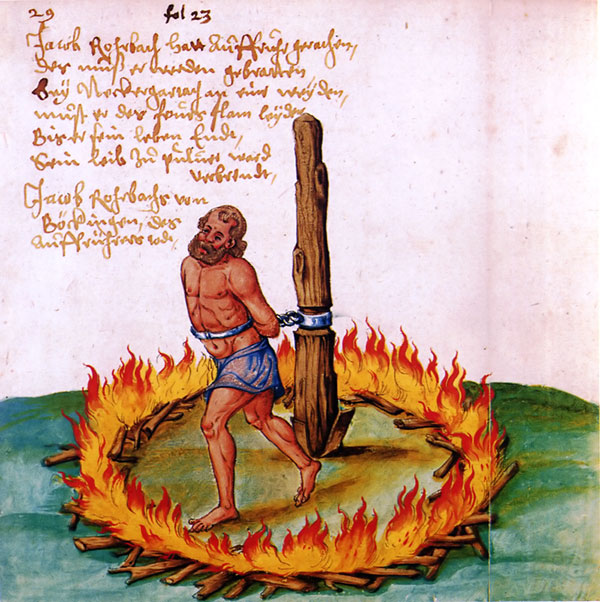 29 fol 23
Jacob Rohrbach hatt Auffruhr gemachen,
Des must er werden gebratten
Bey Neckergartach an eine weyden,
must er des feurs flam leyden
Bis er sein leben Ende,
Sein leib zu puluer ward
verbrendt,
Jacob Rohrbachs von
Böckingen, des
Auffrührers todt,